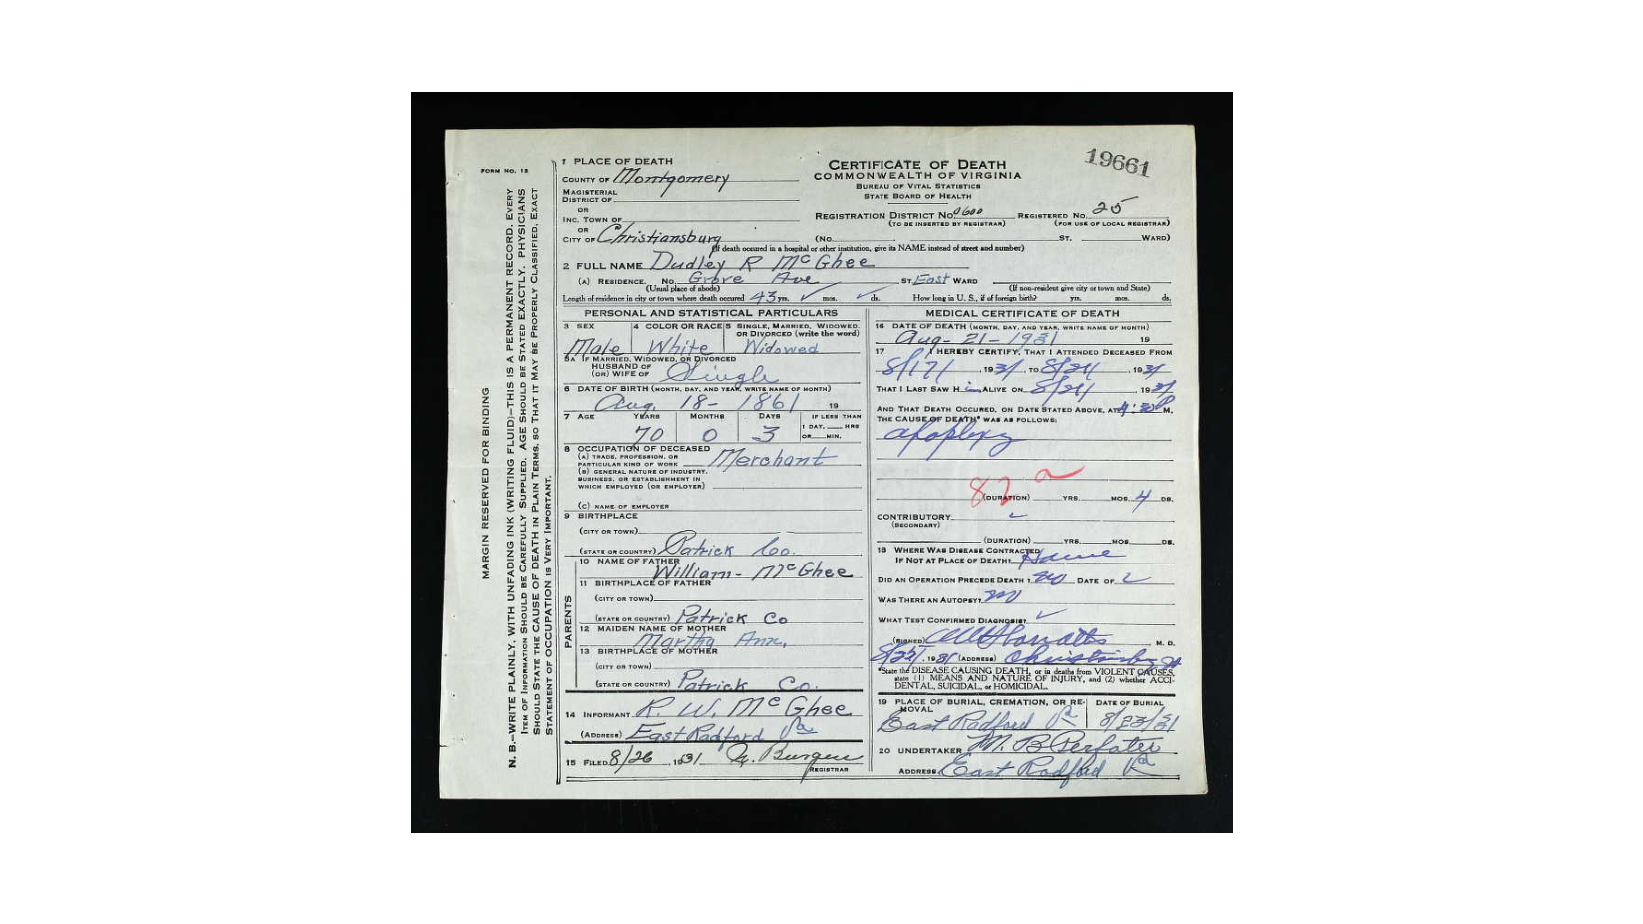 19661
FORM NO. 12
MARGIN RESERVED FOR BINDING
N. B.—WRITE PLAINLY, WITH UNFADING INK (WRITING FLUID)—THIS IS A PERMANENT RECORD. EVERY
ITEM OF INFORMATION SHOULD BE CAREFULLY SUPPLIED. AGE SHOULD BE STATED EXACTLY. PHYSICIANS
SHOULD STATE THE CAUSE OF DEATH IN PLAIN TERMS, SO THAT IT MAY BE PROPERLY CLASSIFIED. EXACT
STATEMENT OF OCCUPATION IS VERY IMPORTANT.
1 PLACE OF DEATH
COUNTY OF Montgomery
MAGISTERIAL
DISTRICT OF
OR
INC. TOWN OF
OR
CITY OF Christiansburg
CERTIFICATE OF DEATH
COMMONWEALTH OF VIRGINIA
BUREAU OF VITAL STATISTICS
STATE BOARD OF HEALTH
REGISTRATION DISTRICT NO. REGISTERED NO. 25
(TO BE INSERTED BY REGISTRAR) (FOR USE OF LOCAL REGISTRAR)
(No. ST. WARD)
(If death occured in a hospital or other institution, give its NAME instead of street and number)
2 FULL NAME Dudley R McGhee
(A) RESIDENCE. No. Grove Ave ST. East WARD
(Usual place of abode) (If non-resident give city or town and State)
Length of residence in city or town where death occured 43 yrs. mos. ds. How long in U. S., if of foreign birth? yrs. mos. ds.
PERSONAL AND STATISTICAL PARTICULARS
3 SEX 4 COLOR OR RACE 5 SINGLE, MARRIED, WIDOWED,
OR DIVORCED (write the word)
Male White Widowed
5A IF MARRIED, WIDOWED, OR DIVORCED
HUSBAND OF
(OR) WIFE OF Single
6 DATE OF BIRTH (MONTH, DAY, AND YEAR, WRITE NAME OF MONTH)
Aug. 18- 1861 19
7 AGE YEARS MONTHS DAYS IF LESS THAN
1 DAY, HRS
OR MIN.
70 0 3
8 OCCUPATION OF DECEASED
(A) TRADE, PROFESSION, OR
PARTICULAR KIND OF WORK Merchant
(B) GENERAL NATURE OF INDUSTRY,
BUSINESS, OR ESTABLISHMENT IN
WHICH EMPLOYED (OR EMPLOYER)
(C) NAME OF EMPLOYER
9 BIRTHPLACE
(CITY OR TOWN)
(STATE OR COUNTRY) Patrick Co.
PARENTS
10 NAME OF FATHER
William - McGhee
11 BIRTHPLACE OF FATHER
(CITY OR TOWN)
(STATE OR COUNTRY) Patrick Co
12 MAIDEN NAME OF MOTHER
Martha Ann,
13 BIRTHPLACE OF MOTHER
(CITY OR TOWN)
(STATE OR COUNTRY) Patrick Co.
14 INFORMANT R. W. McGhee
(ADDRESS) East Radford Va
15 FILED 8/26, 1931
REGISTRAR
MEDICAL CERTIFICATE OF DEATH
16 DATE OF DEATH (MONTH, DAY, AND YEAR, WRITE NAME OF MONTH)
Aug- 21- 1931 19
17 I HEREBY CERTIFY, THAT I ATTENDED DECEASED FROM
8/17/, 1931, TO 8/21/, 1931
THAT I LAST SAW HIM ALIVE ON 8/21/, 1931
AND THAT DEATH OCCURED, ON DATE STATED ABOVE, AT P M.
THE CAUSE OF DEATH* WAS AS FOLLOWS:
apoplexy
82 a
(DURATION) YRS. MOS. 4 DS.
CONTRIBUTORY
(SECONDARY)
(DURATION) YRS. MOS. DS.
18 WHERE WAS DISEASE CONTRACTED
IF NOT AT PLACE OF DEATH? Home
DID AN OPERATION PRECEDE DEATH? no DATE OF
WAS THERE AN AUTOPSY? no
WHAT TEST CONFIRMED DIAGNOSIS?
(SIGNED) M. D.
, 1931 (ADDRESS) Christiansburg Va
*State the DISEASE CAUSING DEATH, or in deaths from VIOLENT CAUSES,
state (1) MEANS AND NATURE OF INJURY, and (2) whether ACCI-
DENTAL, SUICIDAL, or HOMICIDAL.
19 PLACE OF BURIAL, CREMATION, OR RE-
MOVAL
DATE OF BURIAL
East Radford Va 8/23/31
20 UNDERTAKER M. B.
ADDRESS East Radford Va